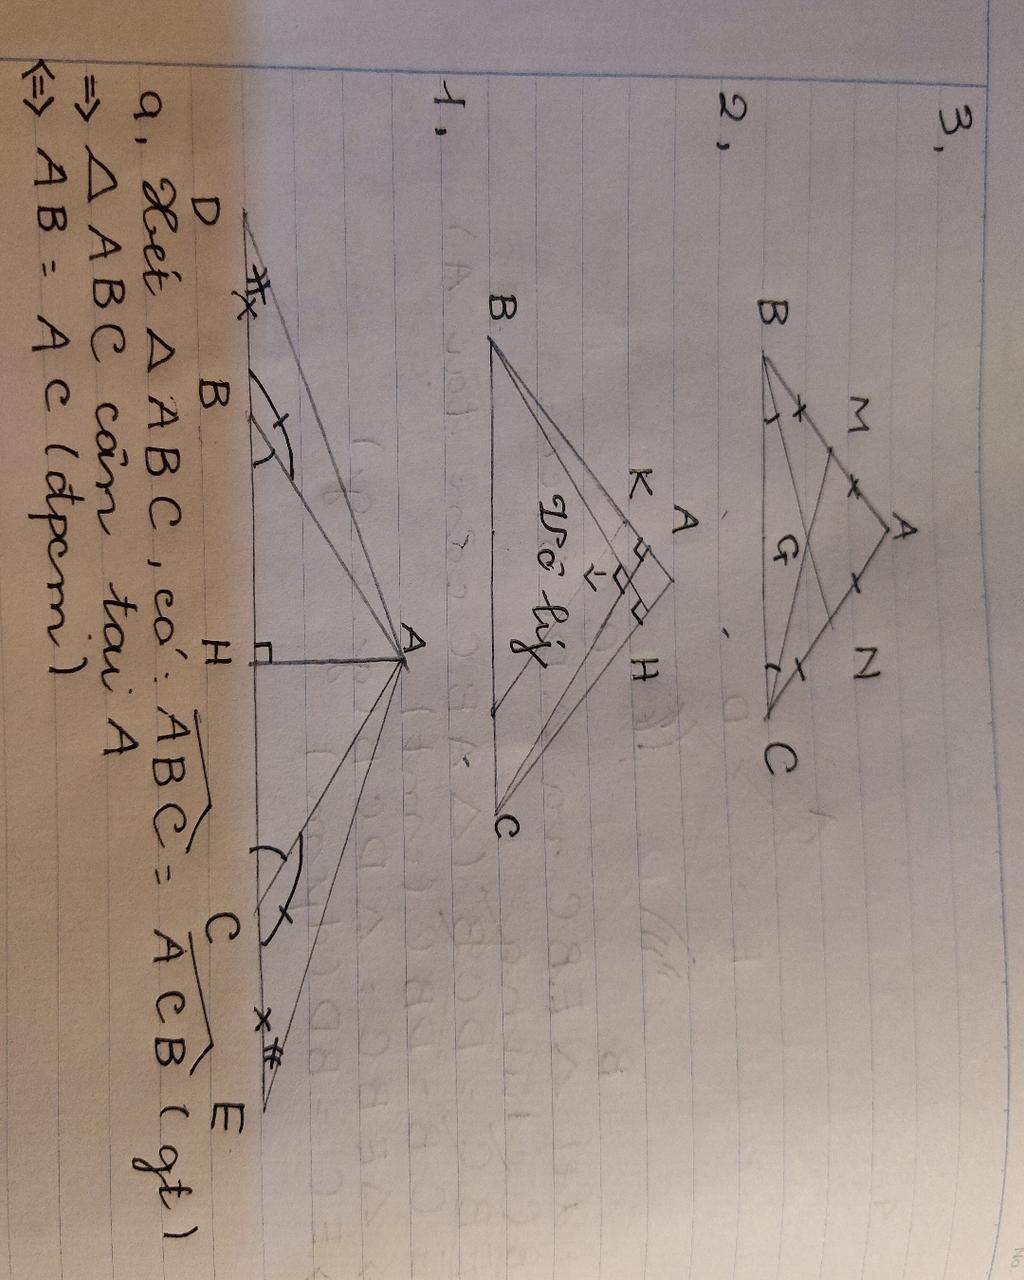 3,
A
M
N
G
B
C
2,
A
K
H
Vô lý
B
C
1,
A
D
B
H
C
E
a, Xét Δ ABC, có: ABC = ACB (gt)
⇒ Δ ABC cân tại A
⇔ AB = AC (đpcm)